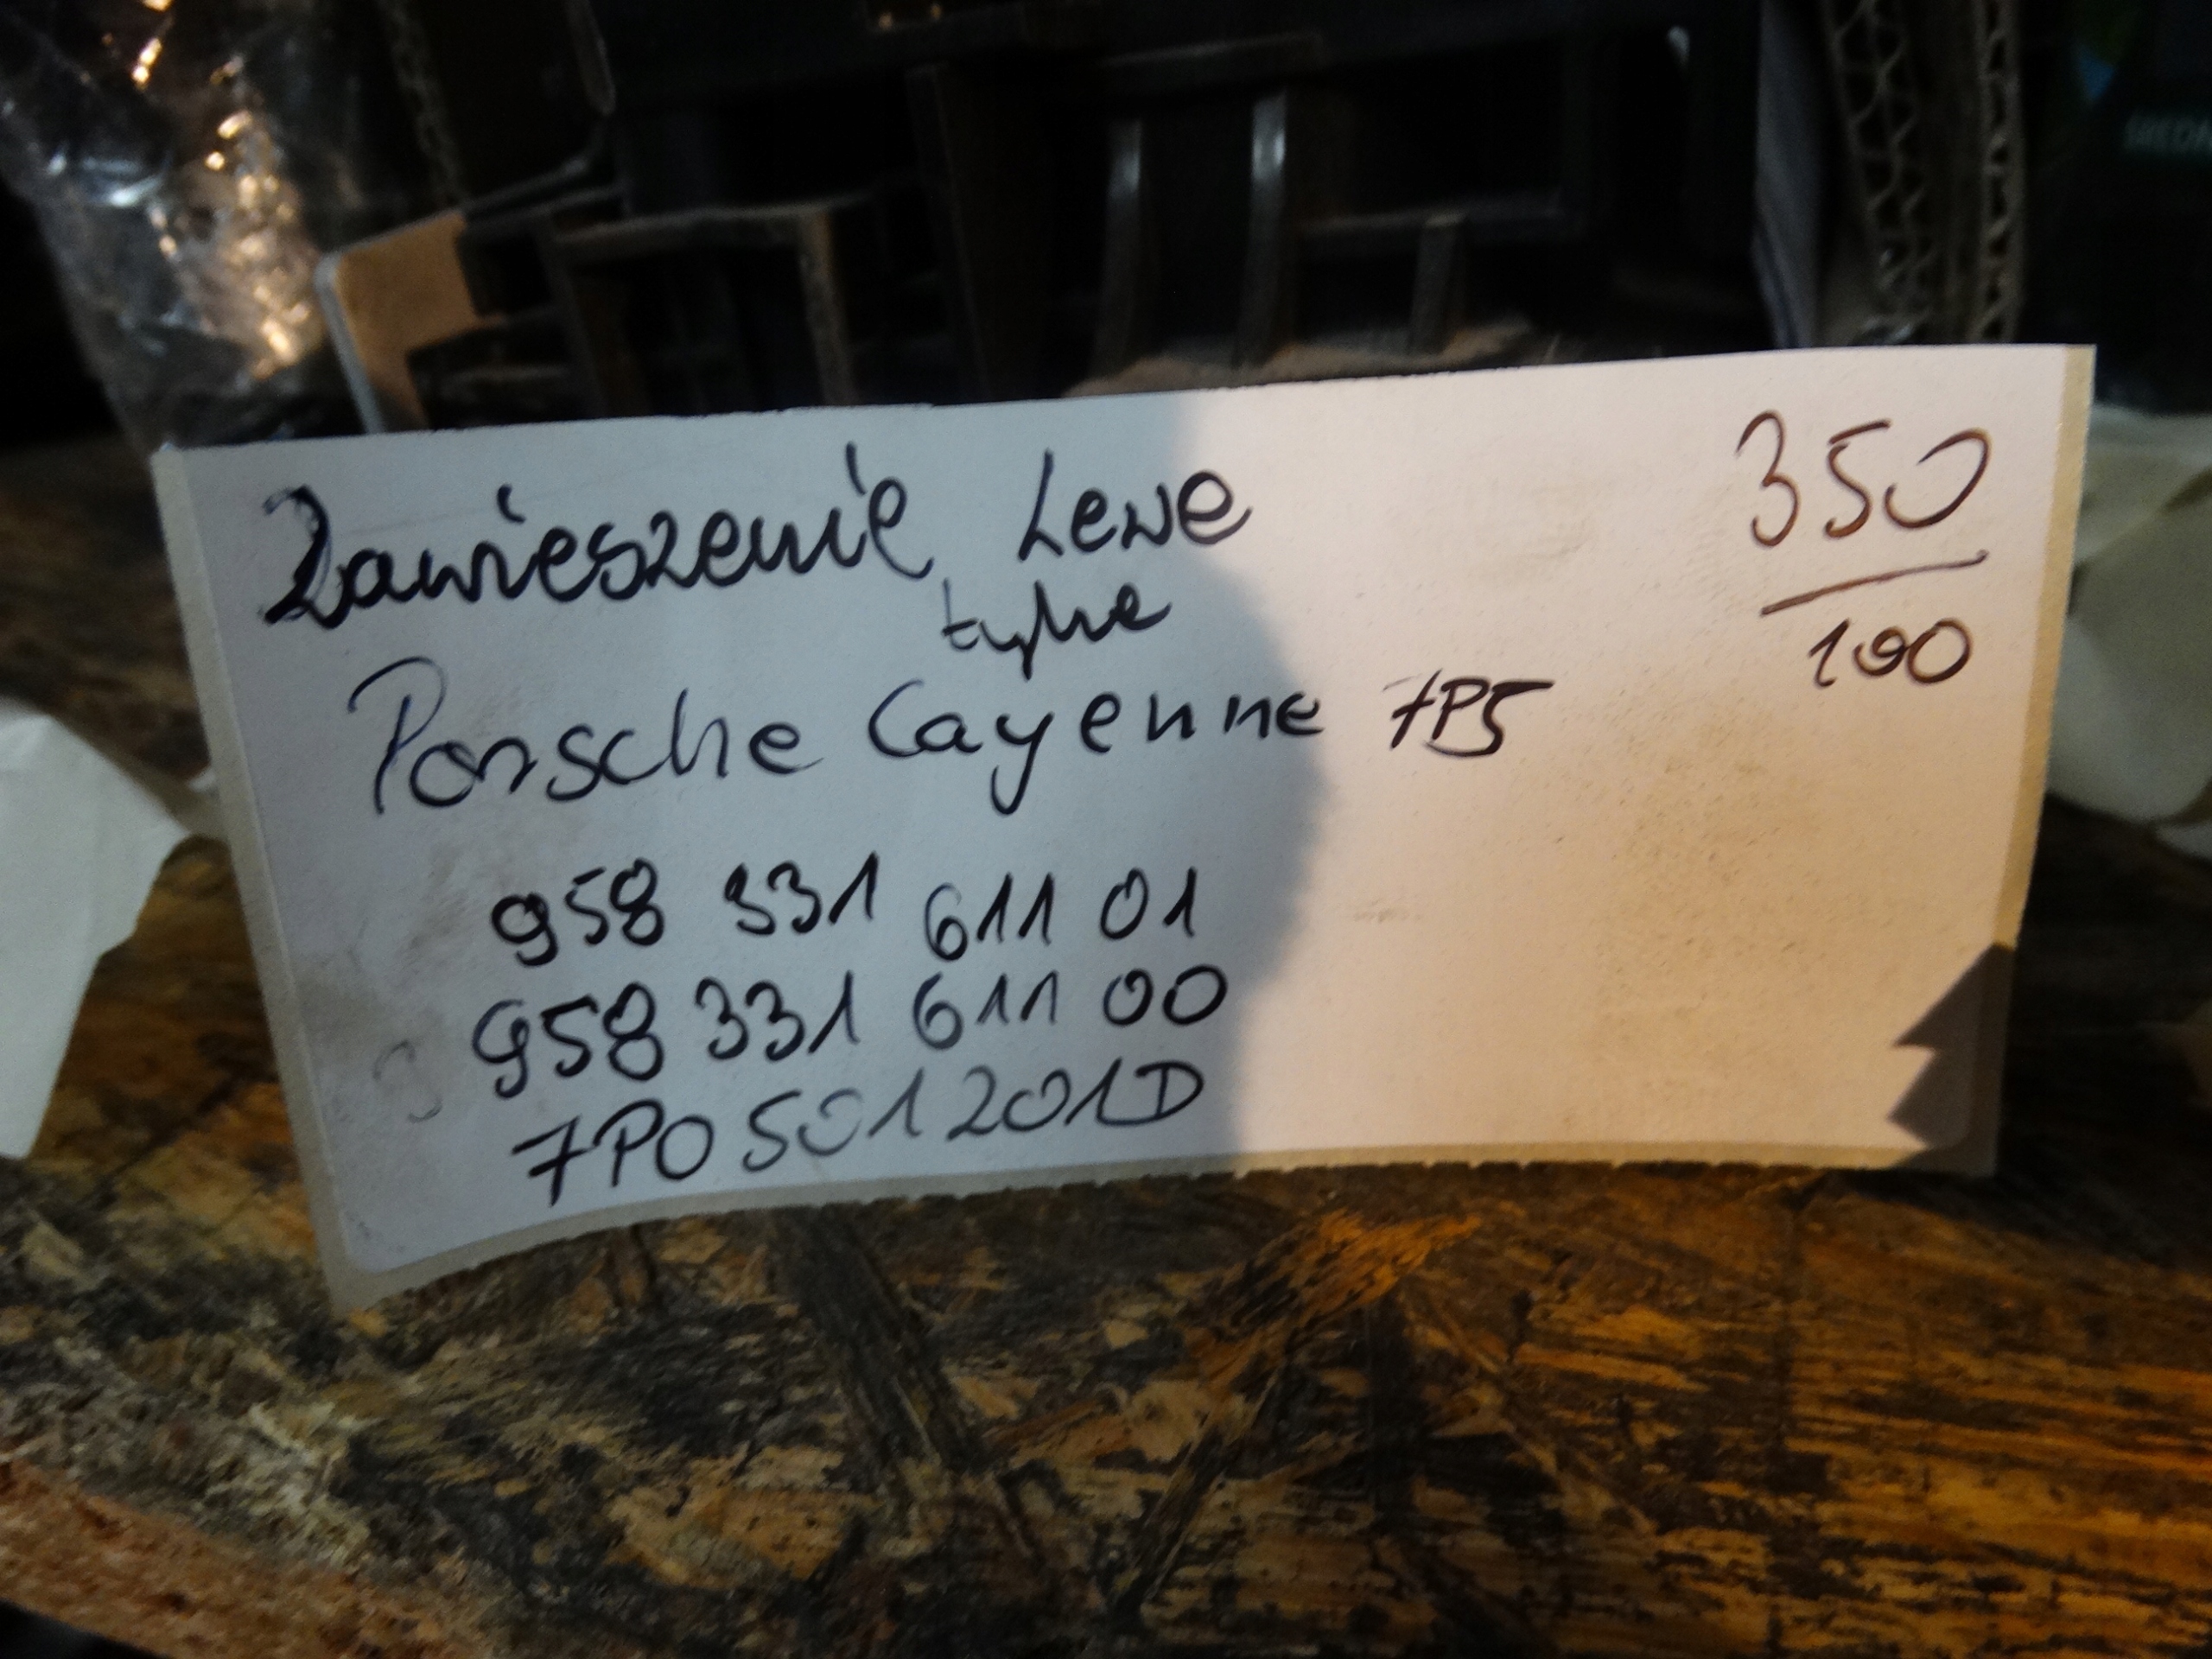 Zawieszenie Lewe
tylne
Porsche Cayenne 7P5
350
100
958 331 611 01
958 331 611 00
7P0 501 201D